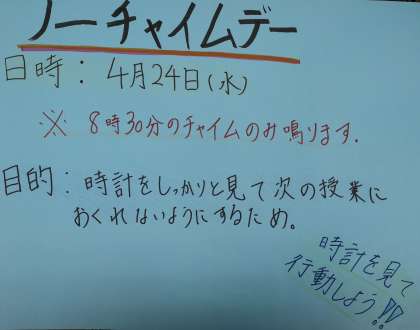 ノーチャイムデー
日時：4月24日(水)
※ 8時30分のチャイムのみ鳴ります.
目的：時計をしっかりと見て次の授業に
おくれないようにするため。
時計を見て
行動しよう!!